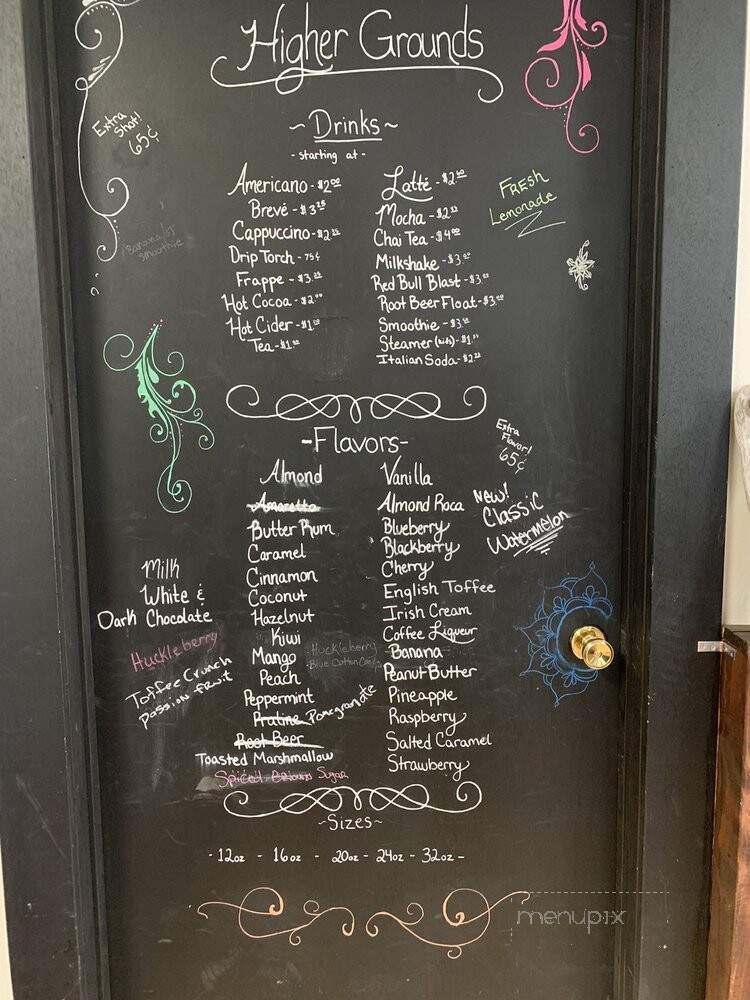 Higher Grounds
Extra
Shot!
65¢
~Drinks~
- starting at -
Americano - $2.00
Brevé - $3.25
Cappuccino -
Drip Torch - 75¢
Frappe -
Hot Cocoa -
Hot Cider -
Tea -
Latté -
Mocha -
Chai Tea - $4.00
Milkshake -
Red Bull Blast -
Root Beer Float -
Smoothie -
Steamer (kids) -
Italian Soda -
FRESH
Lemonade
smoothie
-Flavors-
Extra
Flavor!
65¢
Almond
Amaretto
Butter Rum
Caramel
Cinnamon
Coconut
Hazelnut
Kiwi
Mango
Peach
Peppermint
Praline Pomegranate
Root Beer
Toasted Marshmallow
Spiced Brown Sugar
Vanilla
Almond Roca
Blueberry
Blackberry
Cherry
English Toffee
Irish Cream
Coffee Liqueur
Banana
Peanut Butter
Pineapple
Raspberry
Salted Caramel
Strawberry
New!
Classic
Watermelon
Milk
White &
Dark Chocolate
Huckleberry
Toffee Crunch
passion fruit
Huckleberry
Blue Cotton
~Sizes~
- 12oz - 16oz - 20oz - 24oz - 32oz -
menupix